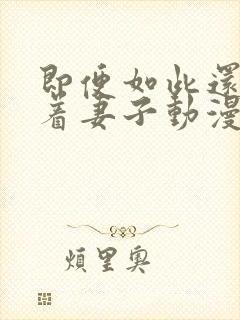 即便如此還
着妻子動漫
煩里奧